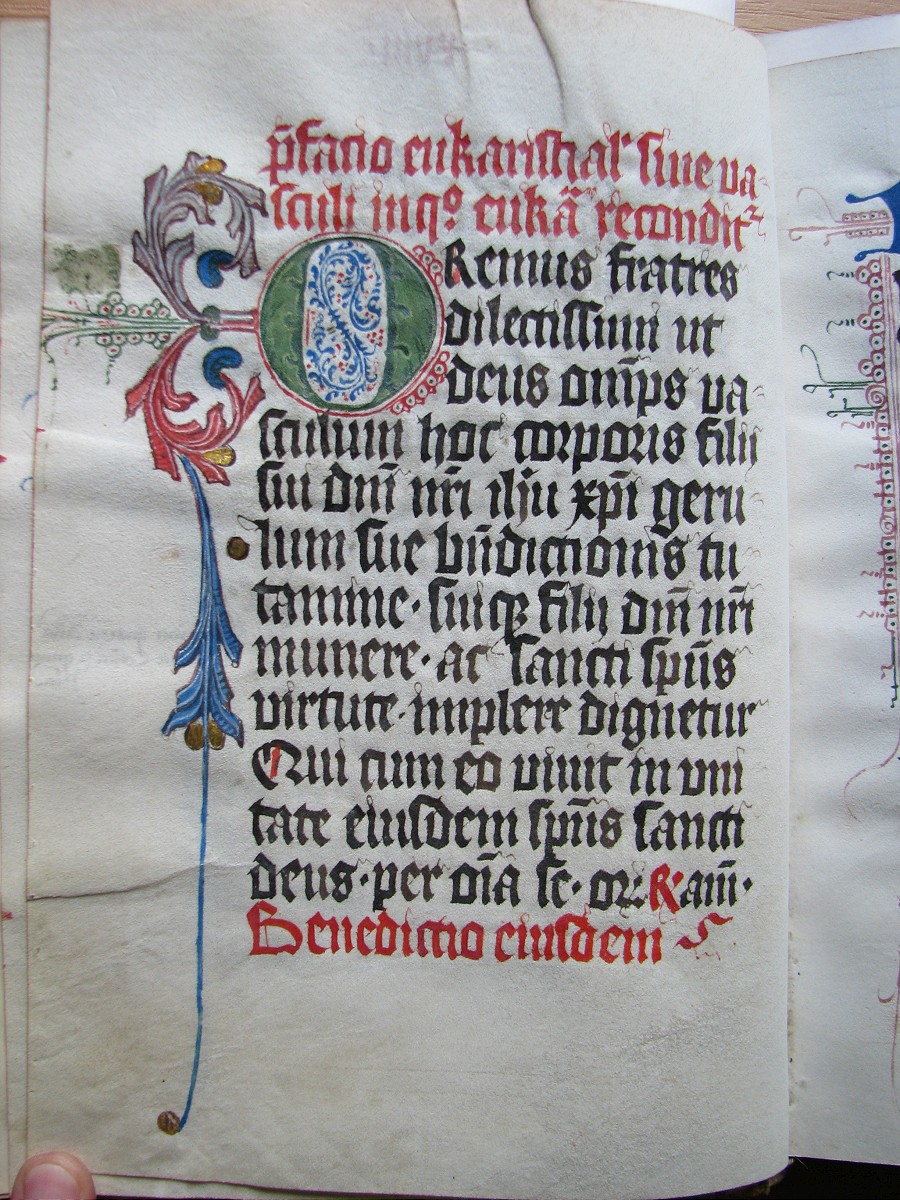 p̄facio eukaristialꝭ siue va-
sculi inqͦ eukāᵃ reconditꝛ
ORemus fratres
dilectissimi ut
deus om̄ips va-
sculum hoc corporis filij
sui dnī nr̄i ihu xp̄i geru-
lum sue bn̄dictionis tu-
tamine· suiqꝫ filij dnī nr̄i
munere· ac sancti sp̄us
virtute· implere dignetur
Qui cum eo viuit in vni
tate eiusdem sp̄us sancti
deus· per oīa se· or· R am̄·
Benedictio eiusdem